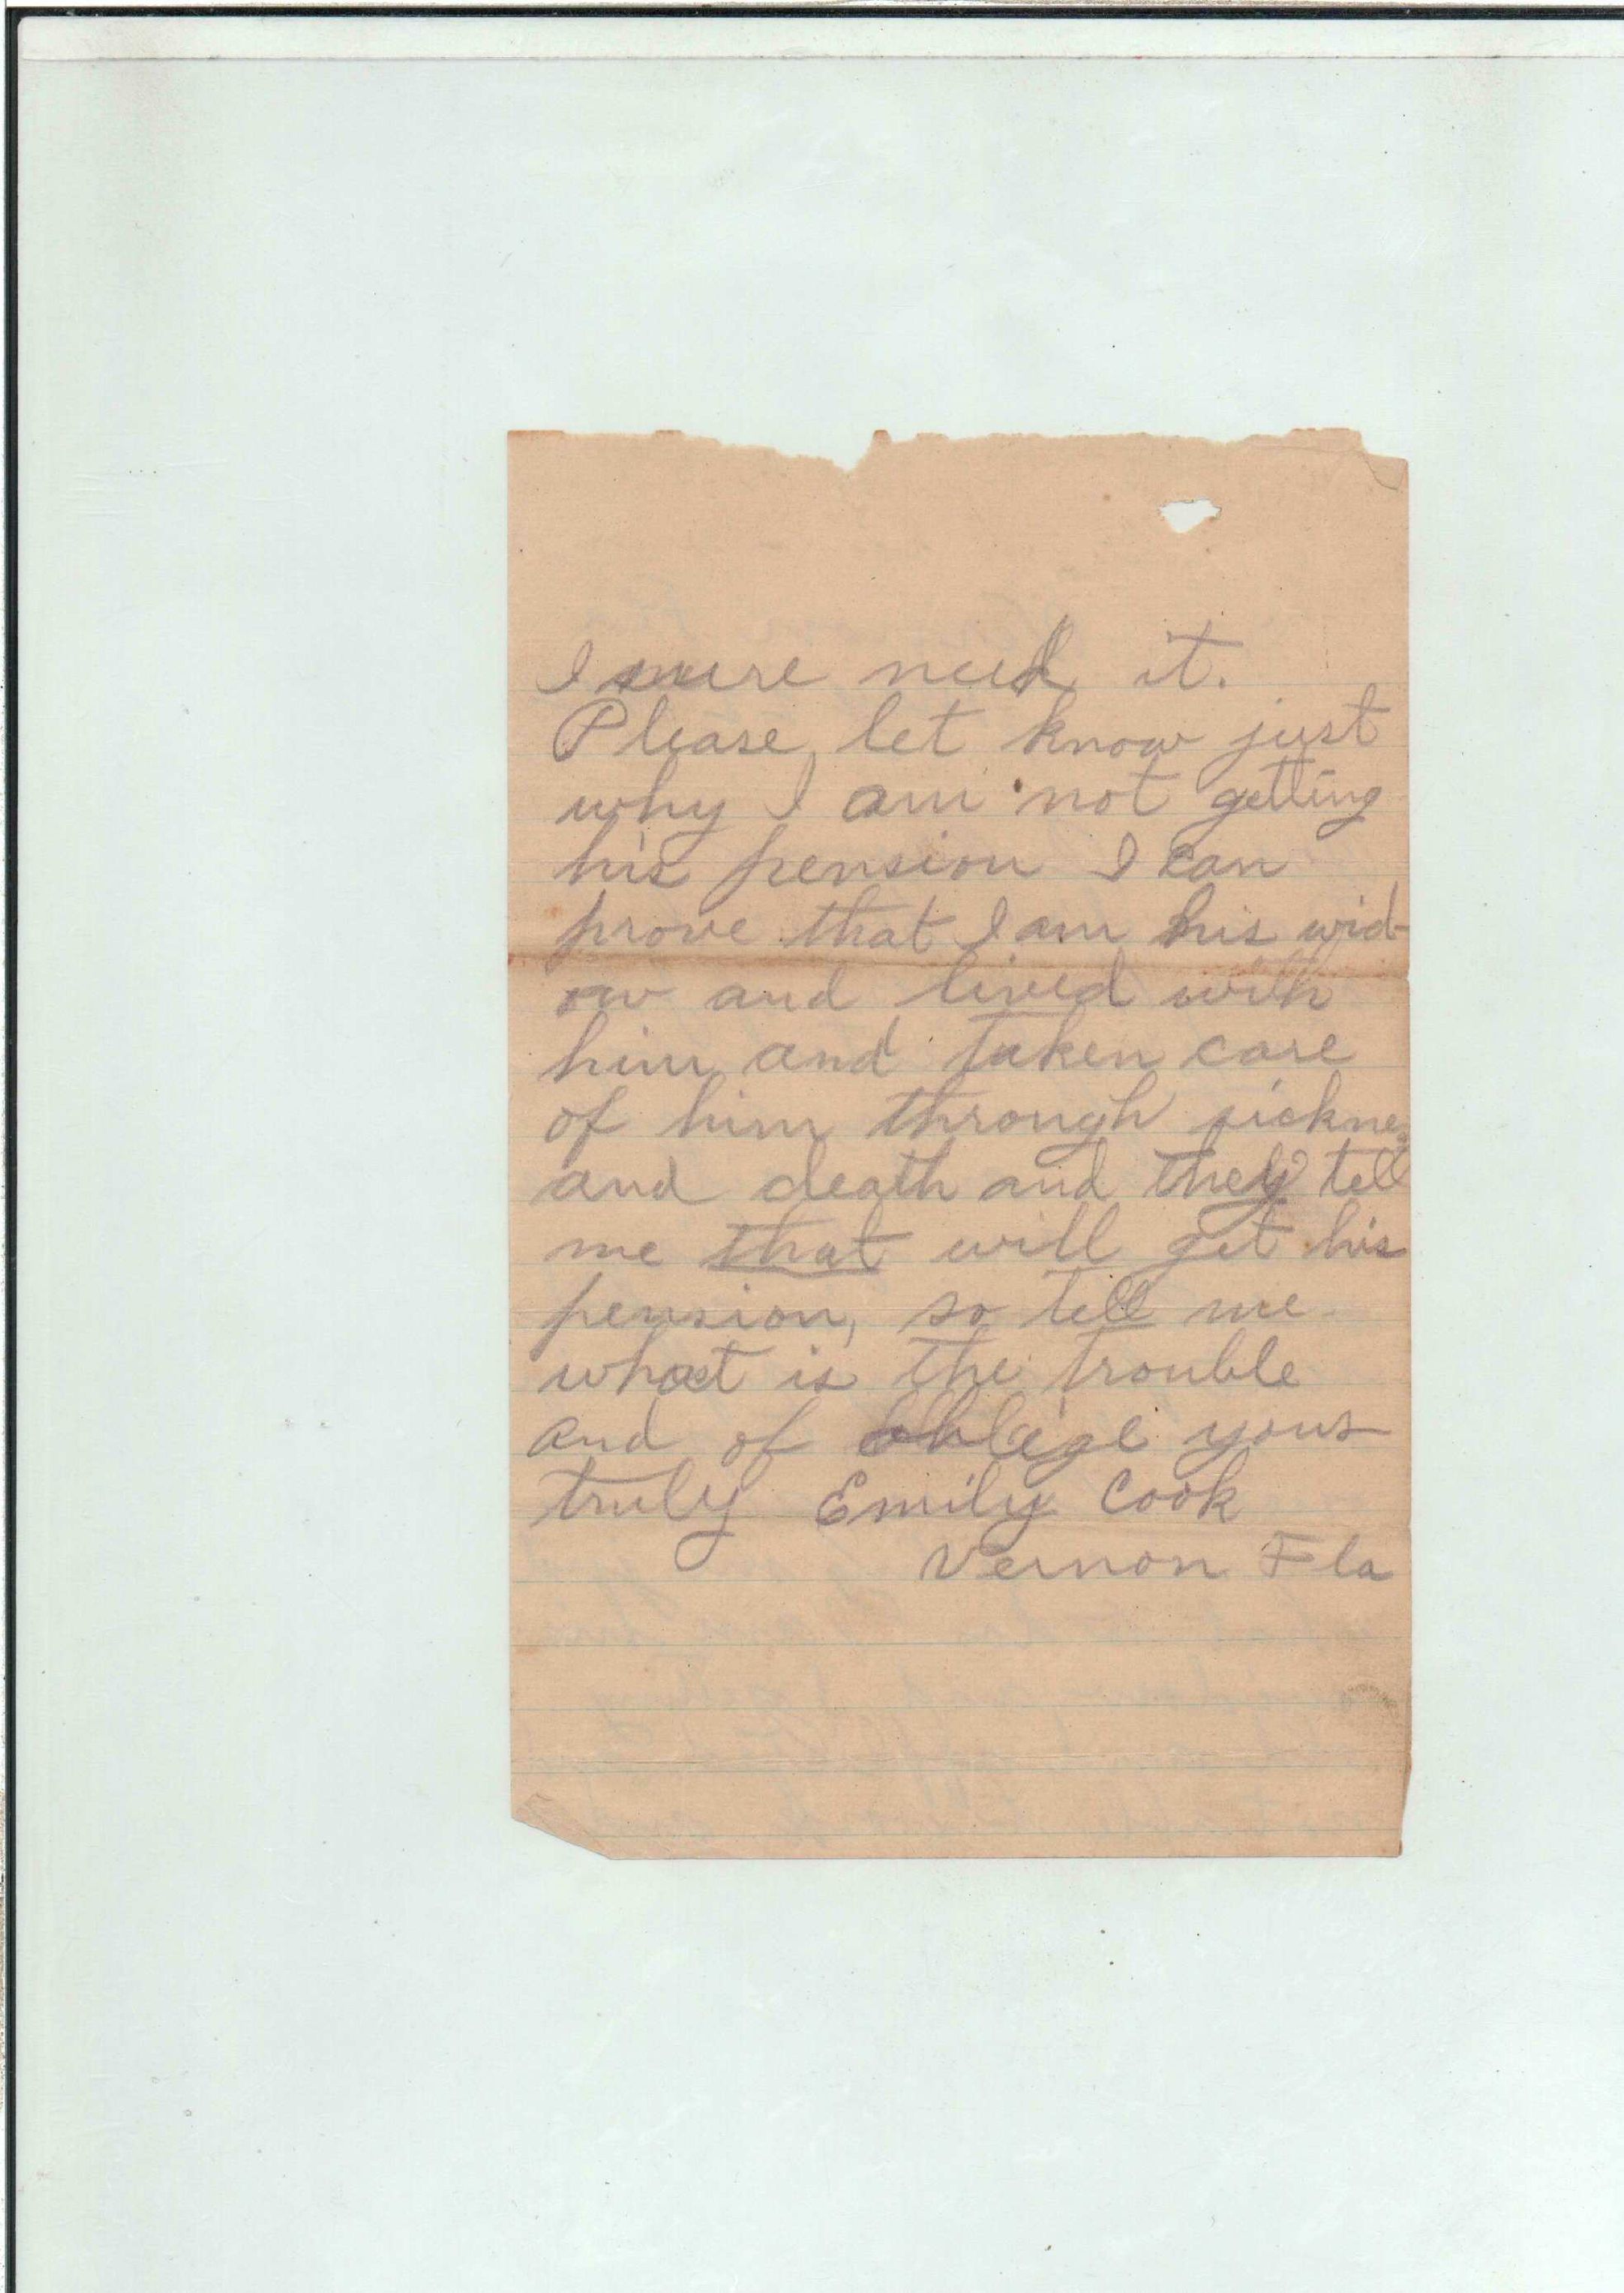 I sure need it.
Please let know just
why I am not getting
his pension I can
prove that I am his wid-
ow and lived with
him and taken care
of him through sicknes
and death and they tell
me that will get his
pension, so tell me
what is the trouble
and of oblige yous
truly Emily Cook
Vernon Fla